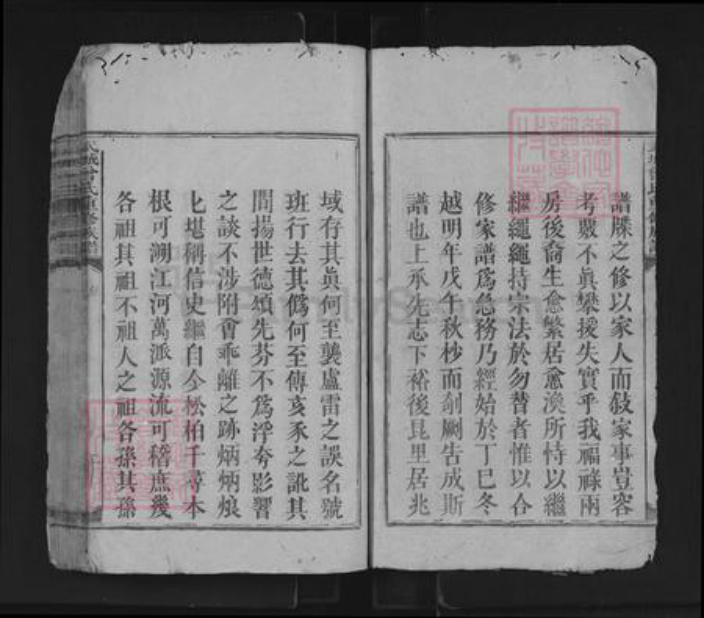 譜牒之修以家人而敍家事豈容
考覈不眞攀援失實乎我福祿兩
房後裔生愈繁居愈渙所恃以繼
繼繩繩持宗法於勿替者惟以合
修家譜爲急務乃經始於丁巳冬
越明年戊午秋杪而剞劂告成斯
譜也上承先志下裕後昆里居兆
域存其眞何至襲盧雷之誤名號
班行去其僞何至傳亥豕之訛其
間揚世德頌先芬不爲浮夸影響
之談不涉附會乖離之跡炳炳烺
烺堪稱信史繼自今松柏千尋本
根可溯江河萬派源流可稽庶幾
各祖其祖不祖人之祖各孫其孫
城曾氏重修族譜